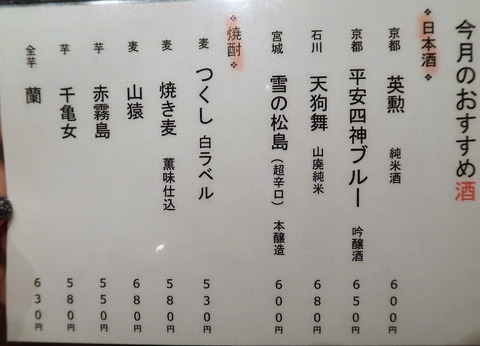 今月のおすすめ酒
日本酒
京都 英勲 純米酒 600円
京都 平安四神ブルー 吟醸酒 650円
石川 天狗舞 山廃純米 680円
宮城 雪の松島(超辛口) 本醸造 600円
焼酎
麦 つくし 白ラベル 530円
麦 焼き麦 薫味仕込 580円
麦 山猿 680円
芋 赤霧島 550円
芋 千亀女 580円
全芋 蘭 630円